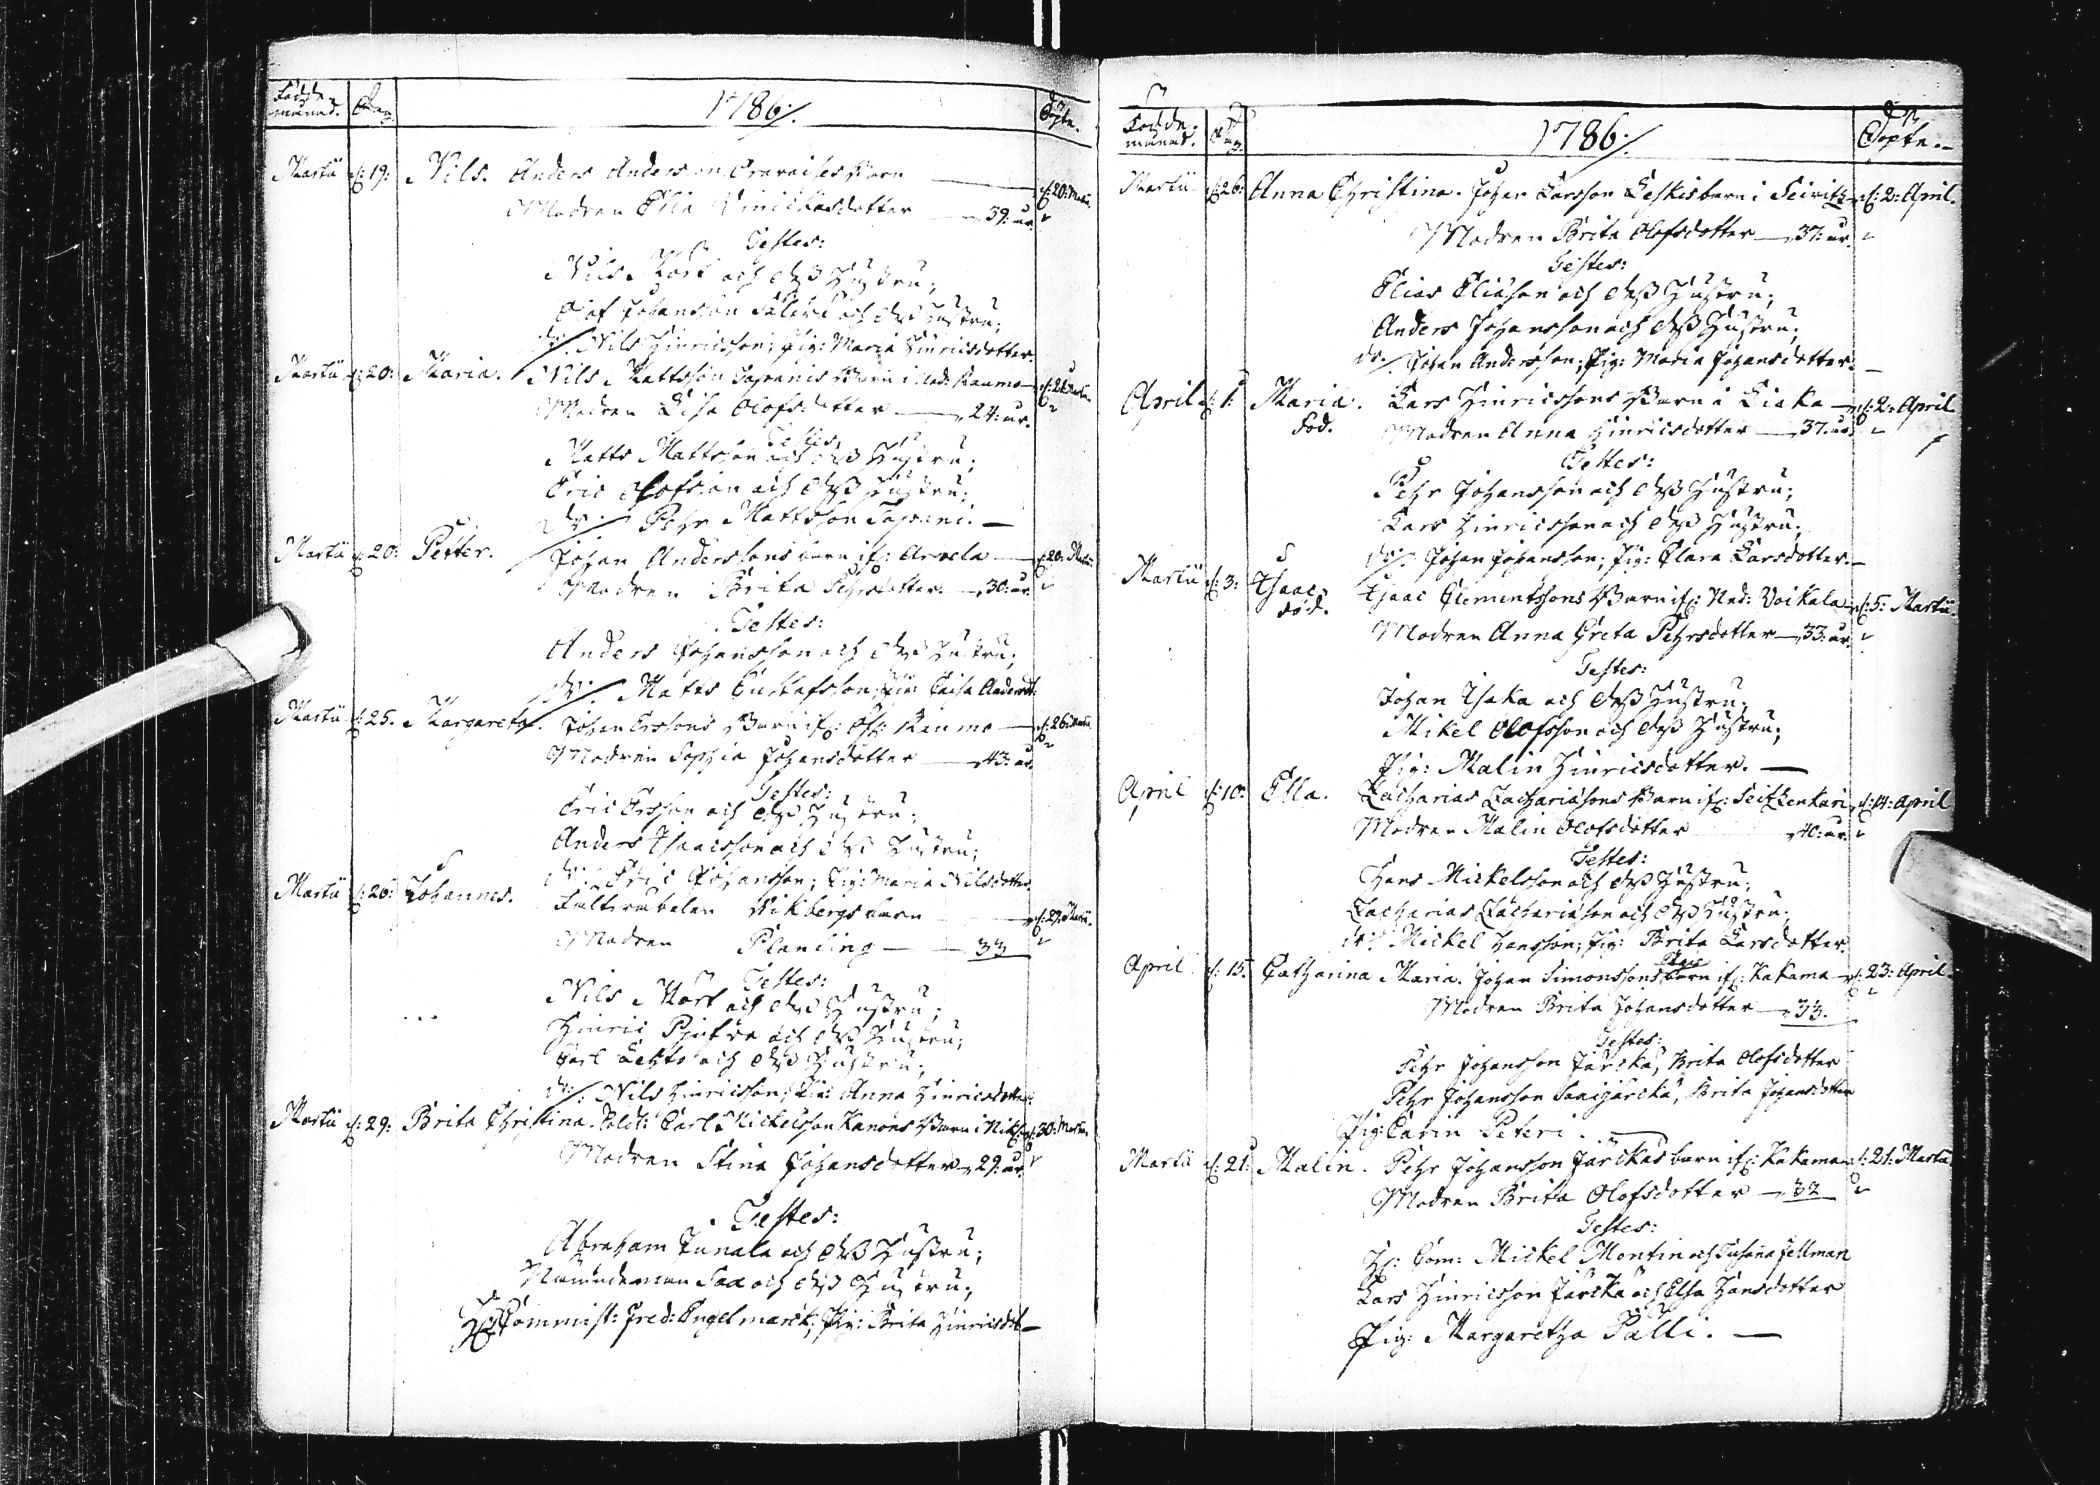 Födde månad. Dag. 1786/. Döpte.
Martii d: 19: Nils. Anders Anderson Cravaises Barn d: 20: Martii
Modren Ella Hinrichsdotter 39: år.
Testes:
Nils Mört och deß Hustru;
Olof Johansson och deß Hustru;
dr:/. Nils Hinricsson; Pig: Maria Hinricsdotter.
Martii d: 20: Maria. Nils Mattsson Barn i Ned: Raumo d: 21: Martii
Modren Lisa Olofsdotter 24: år.
Testes.
Matts Mattsson och deß Hustru;
Eric Olofsson och deß Hustru;
dr:/. Pehr Mattsson
Martii d: 20: Petter. Johan Anderssons barn if: Arvela d: 20: Martii
Modren Brita Pehrsdotter. 30: år.
Testes:
Anders Johansson och deß Hustru;
dr:/. Matts Gustafsson; Pig: Caisa Andersd:
Martii d: 25. Margareta. Johan Erssons Barn if: Öf: Raumo d: 26: Martii
Modren Sophia Johansdotter 43: år.
Testes:
Eric Ersson och deß Hustru;
Anders Isaacsson och deß Hustru;
dr: Eric Johansson; Pig: Maria Nilsdotter.
Martii d: 26: Johannes. Fältwäbelen Wikbergs barn d: 29: Martii
Modren Planting 33
Testes:
Nils Mört och deß Hustru;
Hinric och deß Hustru;
Carl Lehto och deß Hustru;
dr:/. Nils Hinricsson; Pig: Anna Hinricsdotter.
Martii d: 29: Brita Christina. Soldt: Carl Mickelsson Kanons Barn i d: 30: Martii
Modren Stina Johansdotter 29: år.
Testes:
Abraham Junala och deß Hustru;
Nämndeman Sax och deß Hustru;
Hr Commist: Fred: Engelmarck; Pig: Brita Hinricsdot
Födde månad. Dag. 1786:/. Döpte.
Martii d: 26: Anna Christina. Johan Larsson Leskis barn i Seivits d: 2: April.
Modren Brita Olofsdotter 37: år.
Testes:
Elias Eliäson och deß Hustru;
Anders Johansson och deß Hustru;
dr:/. Johan Andersson; Pig: Maria Johansdotter.
April d: 1: Maria. Lars Hinricssons Barn i Liaka d: 2: April
död. Modren Anna Hinricsdotter 37: år.
Testes:
Pehr Johansson och deß Hustru;
Lars Hinricsson och deß Hustru;
dr:/. Johan Johansson; Pig: Clara Larsdotter.
Martii d: 3: Isaac, Isaac Clementssons Barn if: Ned: Voikala d: 5: Martii.
död. Modren Anna Greta Pehrsdotter 33: år
Testes:
Johan Isaka och deß Hustru;
Mikel Olofsson och deß Hustru;
Pig: Malin Hinricsdotter.
April d: 10: Ella. Zacharias Zachariäsons Barn if: Seitzenkari d: 14: April
Modren Malin Olofsdotter 40: år
Testes:
Hans Mickelsson och deß Hustru;
Zacharias Zachariäson och deß Hustru;
dr: Mickel Hansson; Pig: Brita Larsdotter.
April d: 15. Catharina Maria. Johan Simonssons barn if: Kakama d: 23: April.
Modren Brita Johansdotter 33.
Testes:
Pehr Johansson Järckä, Brita Olofsdotter
Pehr Johansson Sanijärckä, Brita Johansdotter
Pig: Carin Peteri.
Martii d: 21: Malin. Pehr Johansson Järckäs barn if: Kakama d: 21: Martii
Modren Brita Olofsdotter 32
Testes:
Hr: Com: Mickel Montin och Susana Fellman
Lars Hinricsson Järckä och Elsa Hansdotter
Pig: Margaretha Palli.